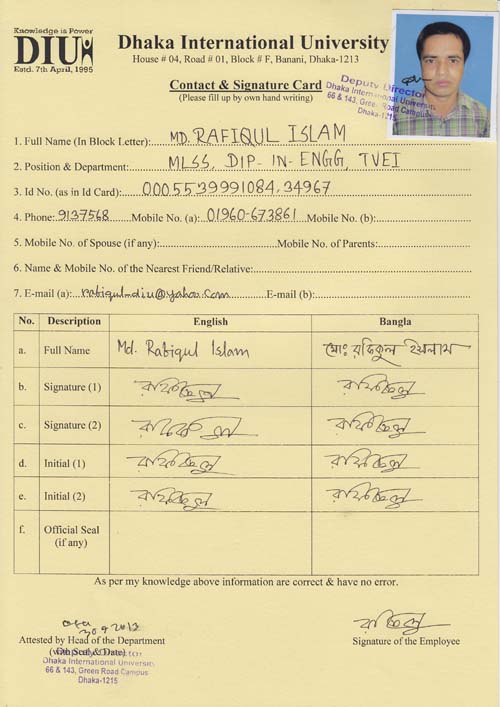 Knowledge is Power
DIU
Estd. 7th April, 1995
Dhaka International University
House # 04, Road # 01, Block # F, Banani, Dhaka-1213
Contact & Signature Card
(Please fill up by own hand writing)
Deputy Director
Dhaka International University
66 & 143, Green Road Campus
Dhaka-1215
1. Full Name (In Block Letter): MD. RAFIQUL ISLAM
2. Position & Department: MLSS, DIP-IN-ENGG, TVEI
3. Id No. (as in Id Card): 00055 39991084, 34967
4. Phone: 9137568 Mobile No. (a): 01960-673861 Mobile No. (b):
5. Mobile No. of Spouse (if any): Mobile No. of Parents:
6. Name & Mobile No. of the Nearest Friend/Relative:
7. E-mail (a): rabiqulmdiu@yahoo.com E-mail (b):
No. Description English Bangla
a. Full Name Md. Rabiqul Islam মোঃ রফিকুল ইসলাম
b. Signature (1)
c. Signature (2)
d. Initial (1)
e. Initial (2)
f. Official Seal
(if any)
As per my knowledge above information are correct & have no error.
30 9 2013
Attested by Head of the Department
(with Seal & Date)
Signature of the Employee
Deputy Director
Dhaka International University
66 & 143, Green Road Campus
Dhaka-1215